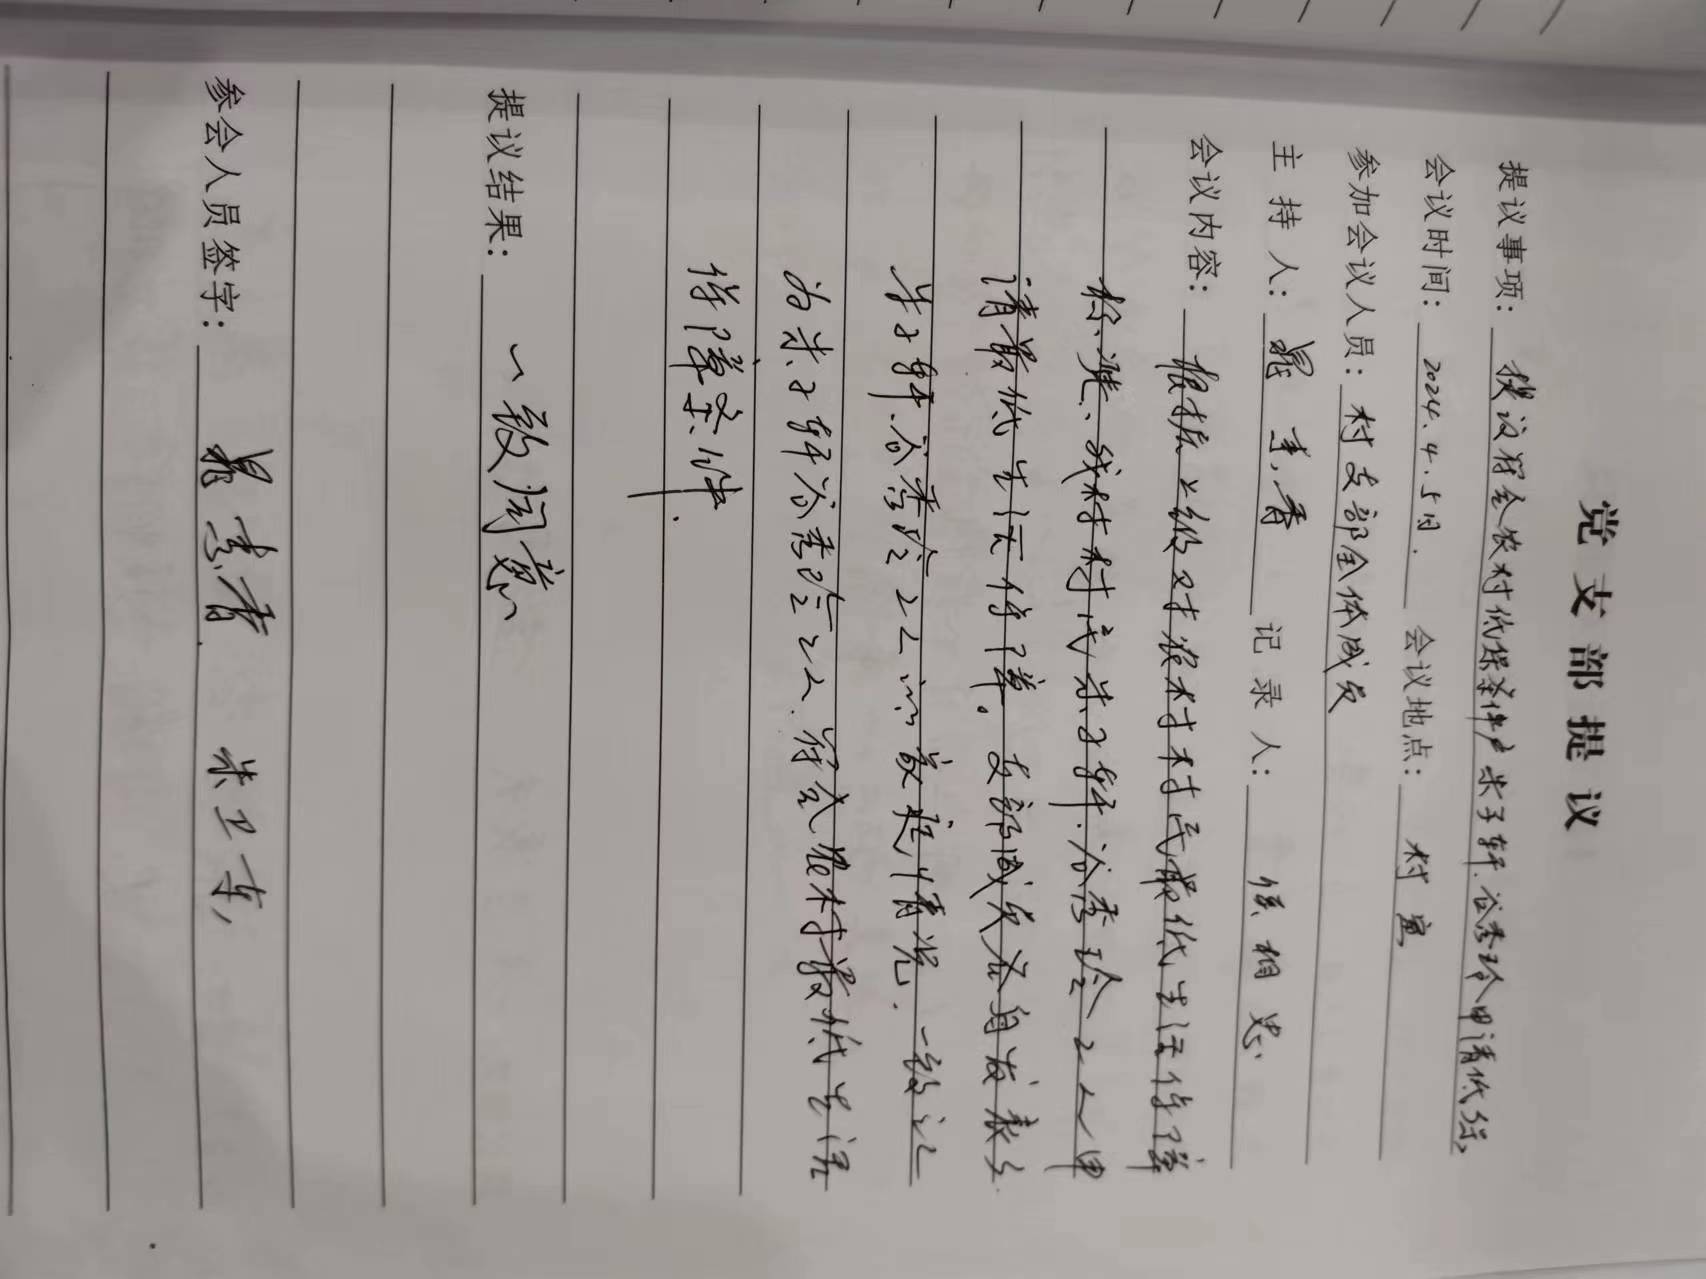 党支部提议
提议事项：提议符合农村低保条件户朱子轩.谷秀玲申请低保
会议时间：2024.4.5日. 会议地点：村室
参加会议人员：村支部全体成员
主持人： 记录人：侯相忠
会议内容：根据上级对农村村民最低生活保障
标准、我村村民朱子轩.谷秀玲2人申
请最低生活保障。支部成员各自发表了
朱子轩.谷秀玲2人的家庭情况.一致认
为朱子轩谷秀玲2人.符合农村最低生活
保障条件.
提议结果：一致同意
参会人员签字： 朱卫东